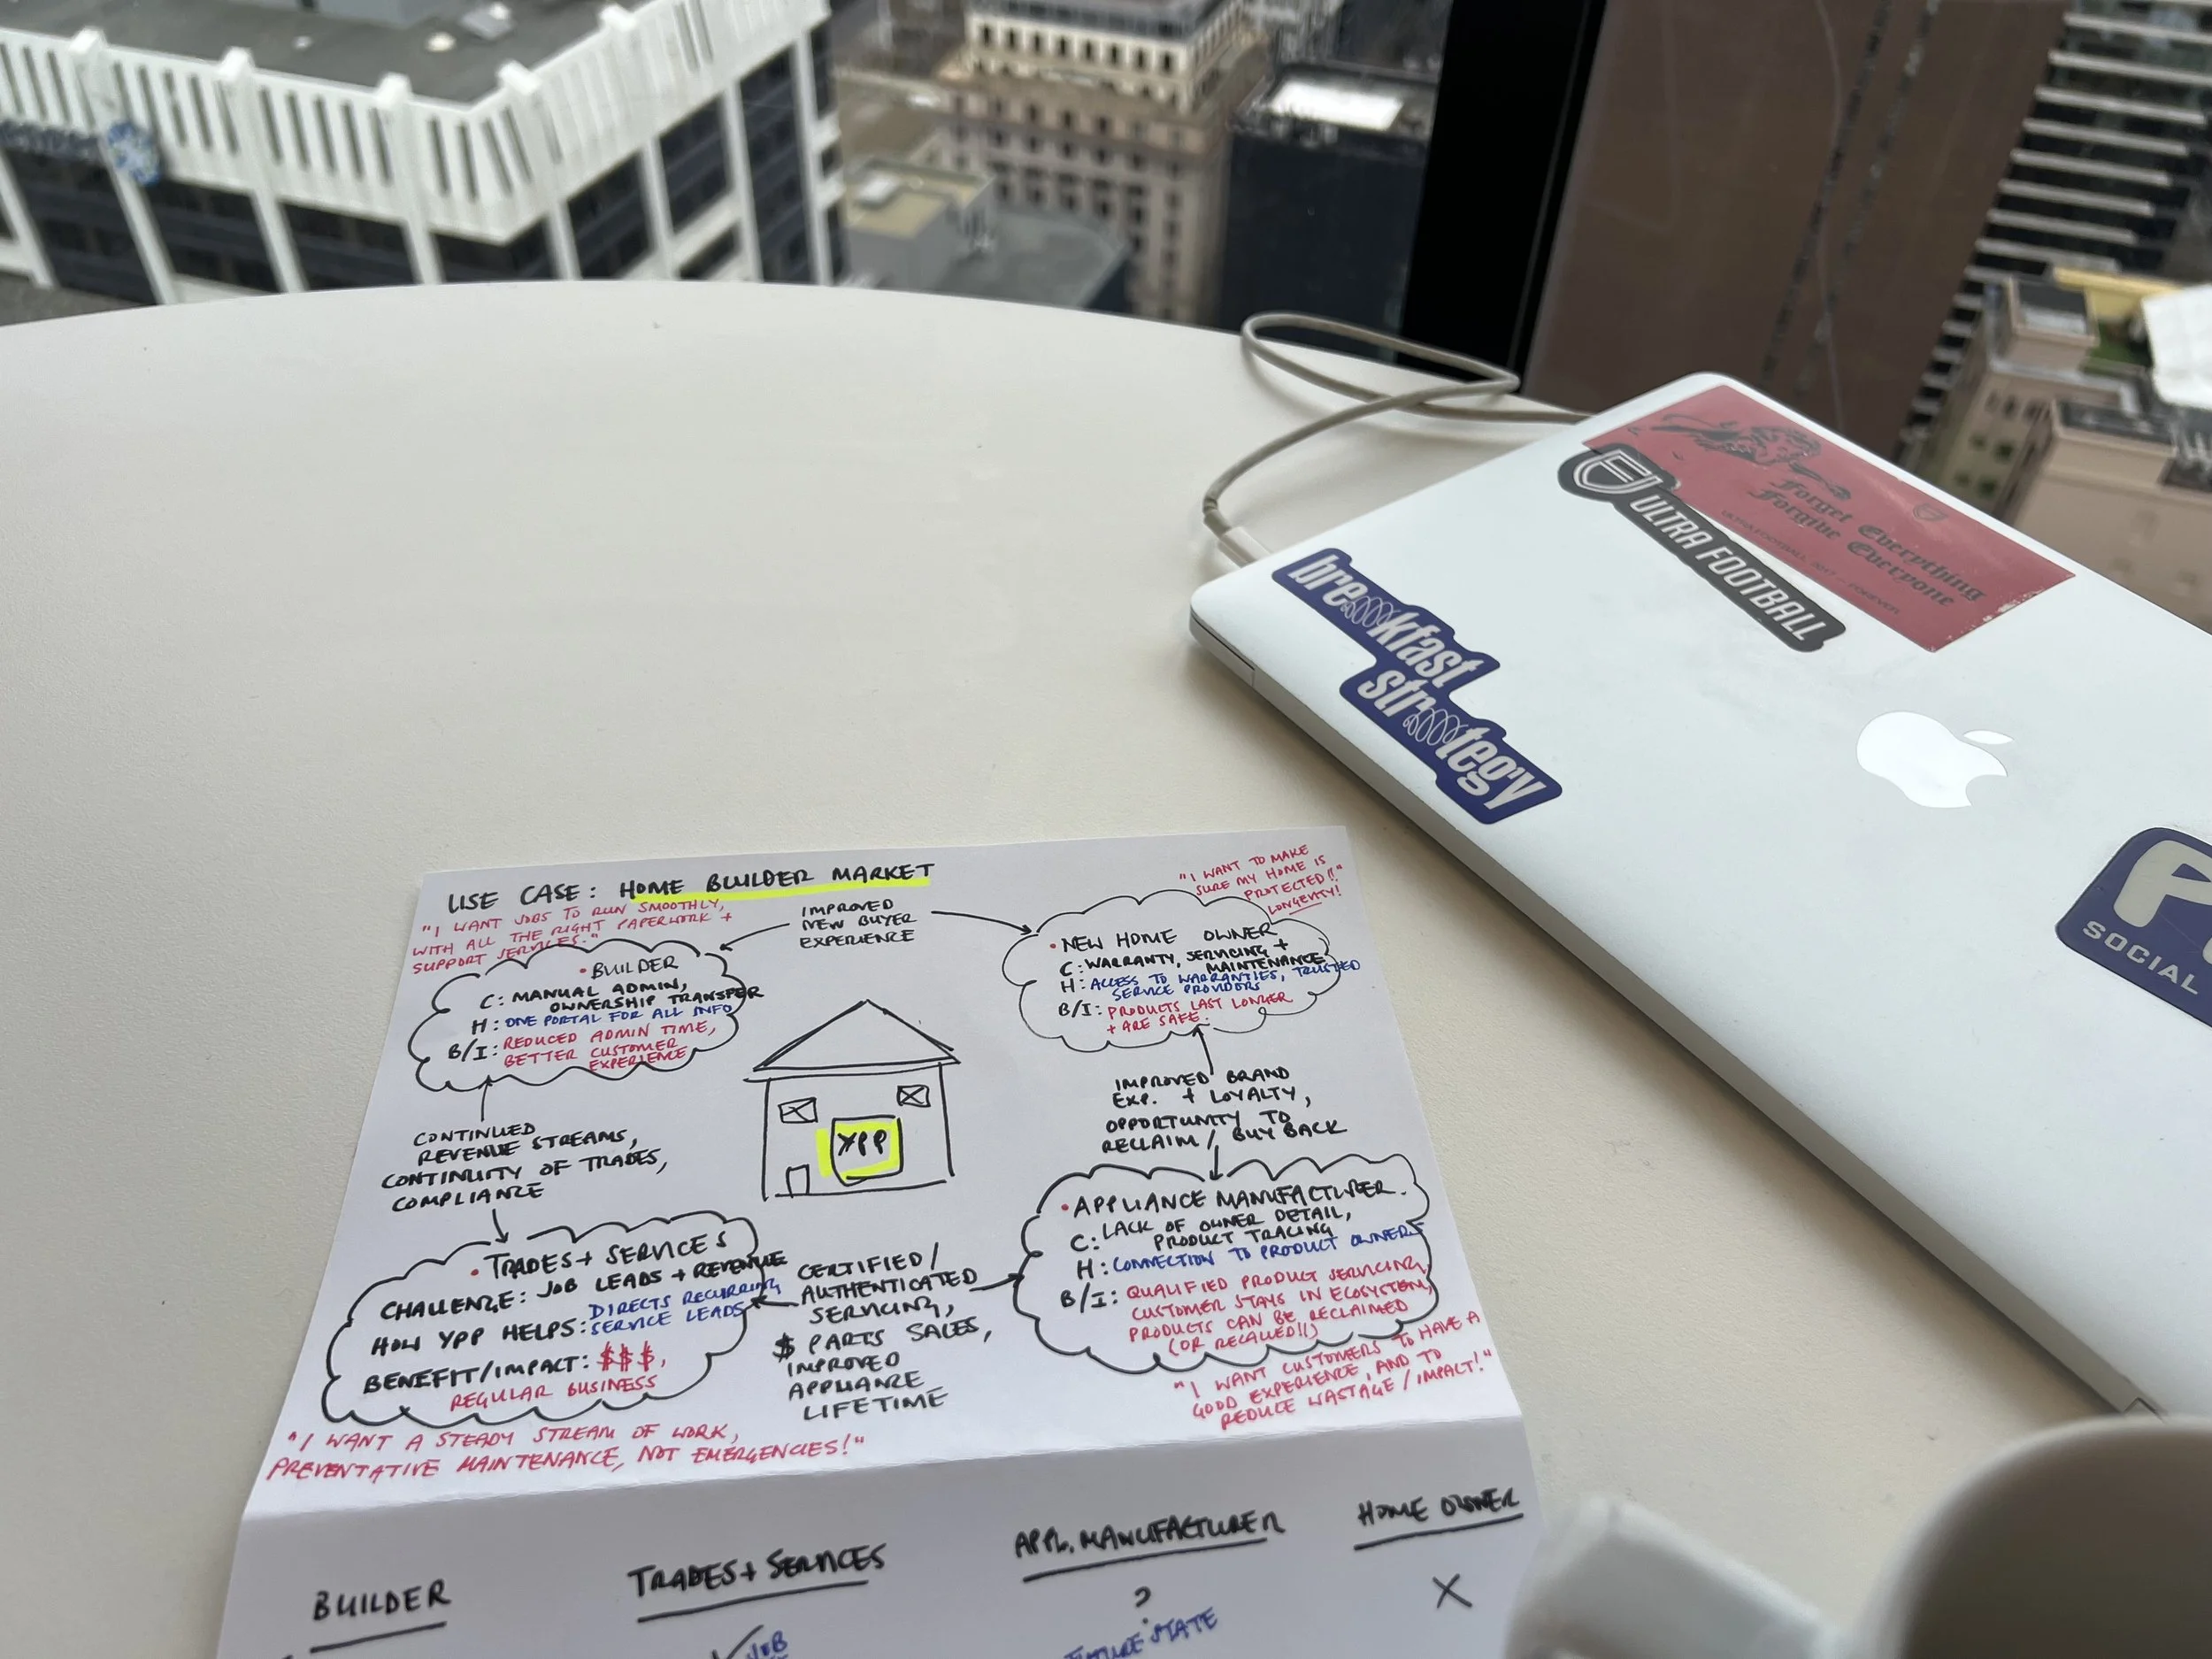 USE CASE: HOME BUILDER MARKET
"I WANT JOBS TO RUN SMOOTHLY,
WITH ALL THE RIGHT PAPERWORK +
SUPPORT SERVICES."
IMPROVED
NEW BUYER
EXPERIENCE
"I WANT TO MAKE
SURE MY HOME IS
PROTECTED!!"
LONGEVITY!
• BUILDER
C: MANUAL ADMIN,
OWNERSHIP TRANSFER
H: ONE PORTAL FOR ALL INFO
B/I: REDUCED ADMIN TIME,
BETTER CUSTOMER
EXPERIENCE
• NEW HOME OWNER
C: WARRANTY, SERVICING +
MAINTENANCE
H: ACCESS TO WARRANTIES, TRUSTED
SERVICE PROVIDORS
B/I: PRODUCTS LAST LONGER
+ ARE SAFE.
YPP
CONTINUED
REVENUE STREAMS,
CONTINUITY OF TRADES,
COMPLIANCE
IMPROVED BRAND
EXP. + LOYALTY,
OPPORTUNITY TO
RECLAIM / BUY BACK
• TRADES + SERVICES
CHALLENGE: JOB LEADS + REVENUE
HOW YPP HELPS: DIRECTS RECURRING
SERVICE LEADS
BENEFIT/IMPACT: $$$,
REGULAR BUSINESS
CERTIFIED/
AUTHENTICATED
SERVICING,
$ PARTS SALES,
IMPROVED
APPLIANCE
LIFETIME
• APPLIANCE MANUFACTURER.
C: LACK OF OWNER DETAIL,
PRODUCT TRACING
H: CONNECTION TO PRODUCT OWNERS
B/I: QUALIFIED PRODUCT SERVICING,
CUSTOMER STAYS IN ECOSYSTEM,
PRODUCTS CAN BE RECLAIMED
(OR RECALLED!!)
"I WANT CUSTOMERS TO HAVE A
GOOD EXPERIENCE, AND TO
REDUCE WASTAGE / IMPACT!"
"I WANT A STEADY STREAM OF WORK,
PREVENTATIVE MAINTENANCE, NOT EMERGENCIES!"
BUILDER
TRADES + SERVICES
APPL. MANUFACTURER
HOME OWNER
JOB
?
FUTURE STATE
X
Forget Everything
Forgive Everyone
ULTRA FOOTBALL 2017 — FOREVER
ULTRA FOOTBALL
breakfast
strategy
SOCIAL